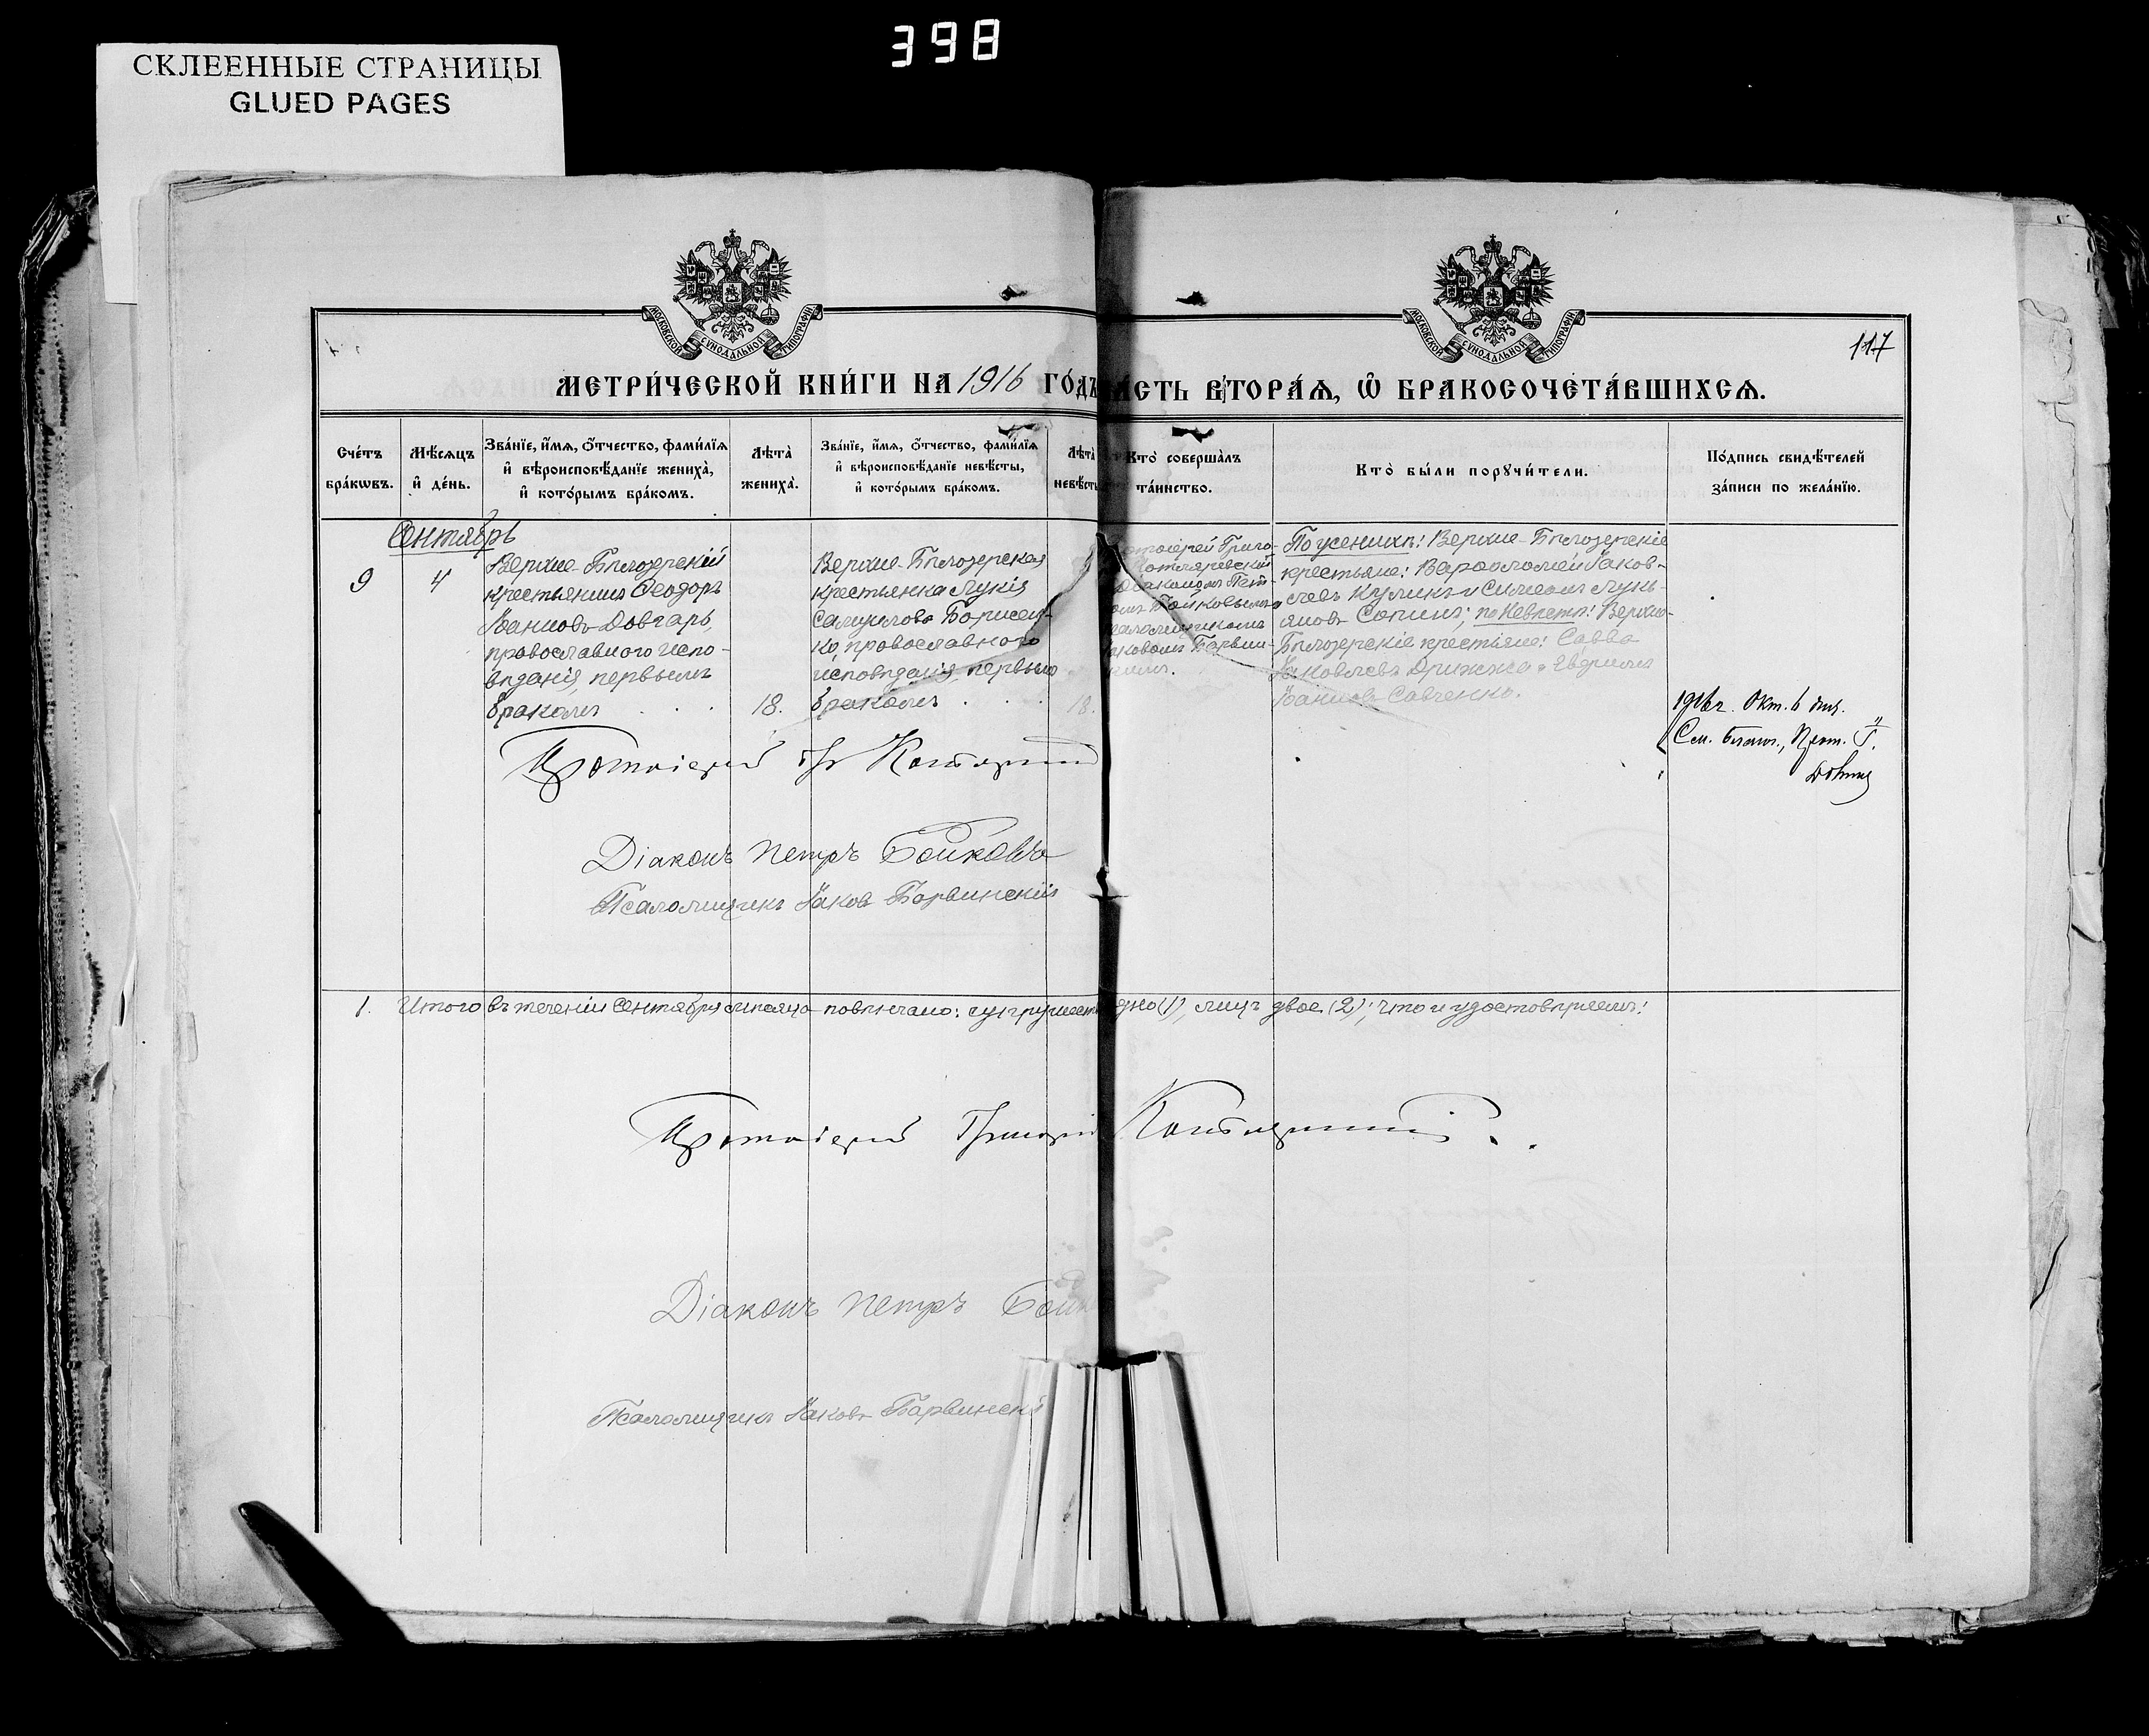 398
СКЛЕЕННЫЕ СТРАНИЦЫ
GLUED PAGES
МОСКОВСКОЙ СѴНОДАЛЬНОЙ ТИПОГРАФІИ
МОСКОВСКОЙ СѴНОДАЛЬНОЙ ТИПОГРАФІИ
117
МЕТРИ́ЧЕСКОЙ КНИ́ГИ НА 1916 ГО́ДЪ
ЧА́СТЬ ВТОРА́Ѧ, Ѽ БРАКОСОЧЕТА́ВШИХСѦ.
Сче́тъ бра́кѡвъ.
Мѣ́сяцъ и҆ де́нь.
Зва́нїе, и҆́мѧ, ѻ҆́тчество, фами́лїѧ
и҆ вѣроисповѣ́данїе жениха̀,
и҆ кото́рымъ бра́комъ.
Лѣ́та жениха̀.
Зва́нїе, и҆́мѧ, ѻ҆́тчество, фами́лїѧ
и҆ вѣроисповѣ́данїе невѣ́сты,
и҆ кото́рымъ бра́комъ.
Лѣ́та невѣ́сты
Кто̀ соверша́лъ
та́инство.
Кто̀ бы́ли порꙋчи́тели.
По́дпись свидѣ́телей
за́писи по жела́нїю.
Сентябрь
9
4
Верхне-Бѣлозерскій
крестьянинъ Ѳеодоръ
Іаанновъ Довгаръ,
православнаго испо-
вѣданія, первымъ
бракомъ
18.
Верхне-Бѣлозерская
крестьянка Лукія
Самуилова Борисен-
ко, православнаго
исповѣданія, первымъ
бракомъ
18.
Протоіерей Григо-
Котляревскій
діакономъ Пет-
ромъ Бойковымъ
псаломщикомъ
Іаковомъ Барвин-
скимъ.
По женихѣ: Верхне-Бѣлозерскіе
крестьяне: Варѳоломей Іаков-
левъ Куликъ и Симеонъ Лукь-
яновъ Сопинъ; по невѣстѣ: Верхне-
Бѣлозерскіе крестьяне: Савва
Іаковлевъ Дрижжа и
Іоанновъ Савченко.
1916 г. Окт. 6 дня.
См. благоч., Прот. Г.
Протоіерей Гр Котляревскій
Діаконъ Петръ Бойковъ
Псаломщикъ Іаковъ Барвинскій
1. Итого въ теченіи Сентября мѣсяца повѣнчано: супружествъ одно (1), лицъ двое (2); что и удостовѣряемъ:
Протоіерей Григорій Котляревскій.
Діаконъ Петръ Бойк
Псаломщикъ Іаковъ Барвинскій